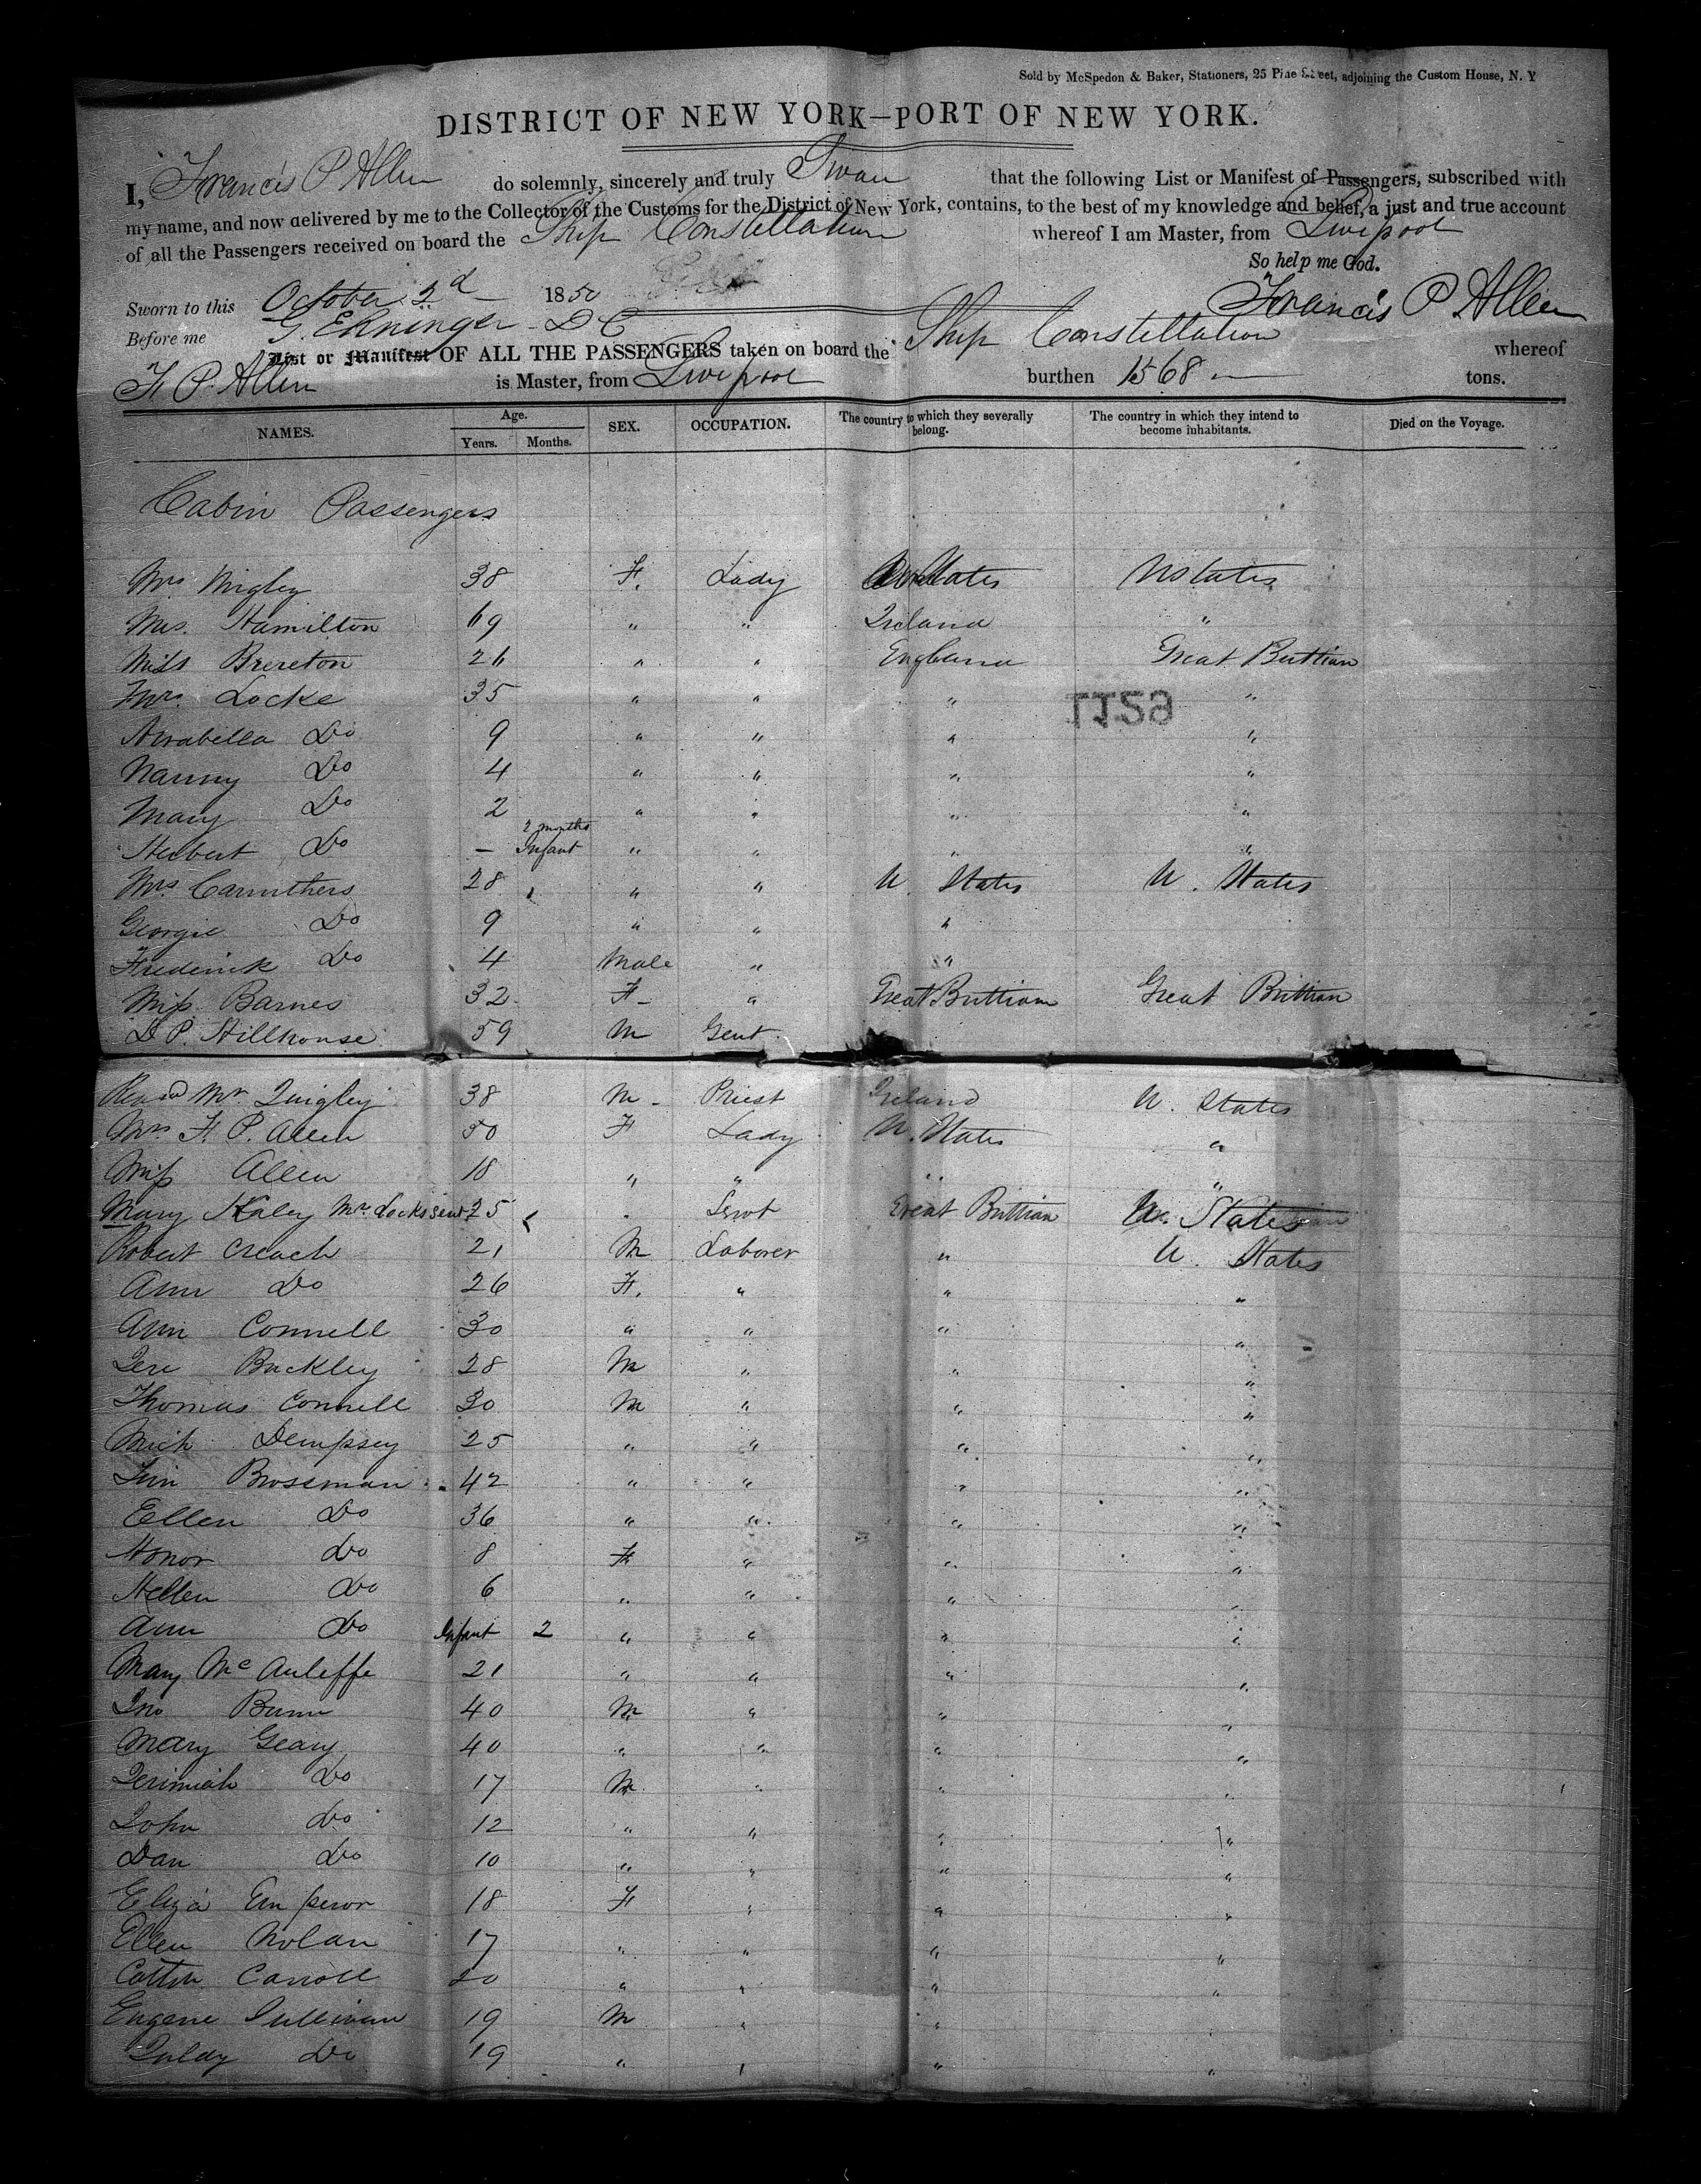 Sold by McSpedon & Baker, Stationers, 25 Pine Street, adjoining the Custom House, N. Y
DISTRICT OF NEW YORK—PORT OF NEW YORK.
I, Francis P Allen do solemnly, sincerely and truly Swear that the following List or Manifest of Passengers, subscribed with
my name, and now delivered by me to the Collector of the Customs for the District of New York, contains, to the best of my knowledge and belief, a just and true account
of all the Passengers received on board the Ship Constellation whereof I am Master, from Liverpool
So help me God.
Sworn to this October 2d 1850
Francis P Allen
Before me G. Ehninger D C
List or Manifest OF ALL THE PASSENGERS taken on board the Ship Constellation whereof
F. P. Allen is Master, from Liverpool burthen 1568 tons.
NAMES. Age. Years. Months. SEX. OCCUPATION. The country to which they severally belong. The country in which they intend to become inhabitants. Died on the Voyage.
Cabin Passengers
Mrs 38 F. Lady States UStates
Mrs. Hamilton 69 " " Ireland "
Miss Brereton 26 " " England Great Buttian
Mrs. Locke 35 " " " "
1152
Arabella Do 9 " " " "
Nanny Do 4 " " " "
Mary Do 2 " " " "
Herbert Do – 2 months Infant " " " "
Mrs Carruthers 28 " " U. States U. States
Georgie Do 9 " " "
Frederick Do 4 Male " "
Miss Barnes 32 F " Great Buttian Great Brittian
D P. Hillhouse 59 M Gent.
Revd Mr. Quigley 38 M Priest Ireland U. States
Mrs F. P. Allen 50 F Lady U. States "
Miss Allen 18 " " " "
Mary Kaley Mrs Locks servt 25 " Servt Great Buttian U. States
Robert Creach 21 M Laborer " U. States
Ann Do 26 F. " " "
Ann Connell 30 " " " "
Jere Buckley 28 M " " "
Thomas Connell 30 M " " "
Mich Dempsey 25 " " " "
Tim Brossman 42 " " " "
Ellen Do 36 " " " "
Honor Do 8 F " " "
Hellen Do 6 " " " "
Ann Do Infant 2 " " " "
Mary Mc Auleffe 21 " " " "
Jno 40 M " " "
Mary Geary 40 " " " "
Jerimiah Do 17 M " " "
John Do 12 " " " "
Dan Do 10 " " " "
Eliza Emperor 18 F " " "
Ellen Nolan 17 " " " "
Carroll 20 " " " "
Eugene Sullivan 19 M " " "
Do 19 " " " "